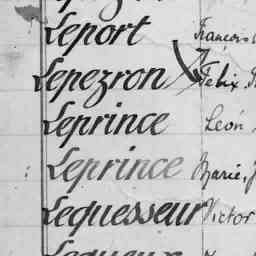 Leport François
Lepezron Felix
Leprince Léon
Leprince Marie, J
Lequesseur Victor